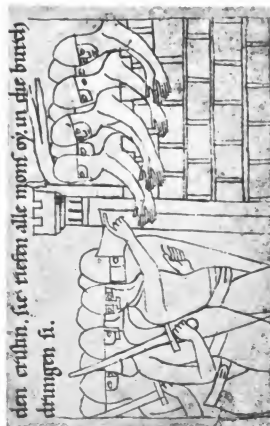 den cristin. sie riefen alle monsoy. in die burch
drungen si.